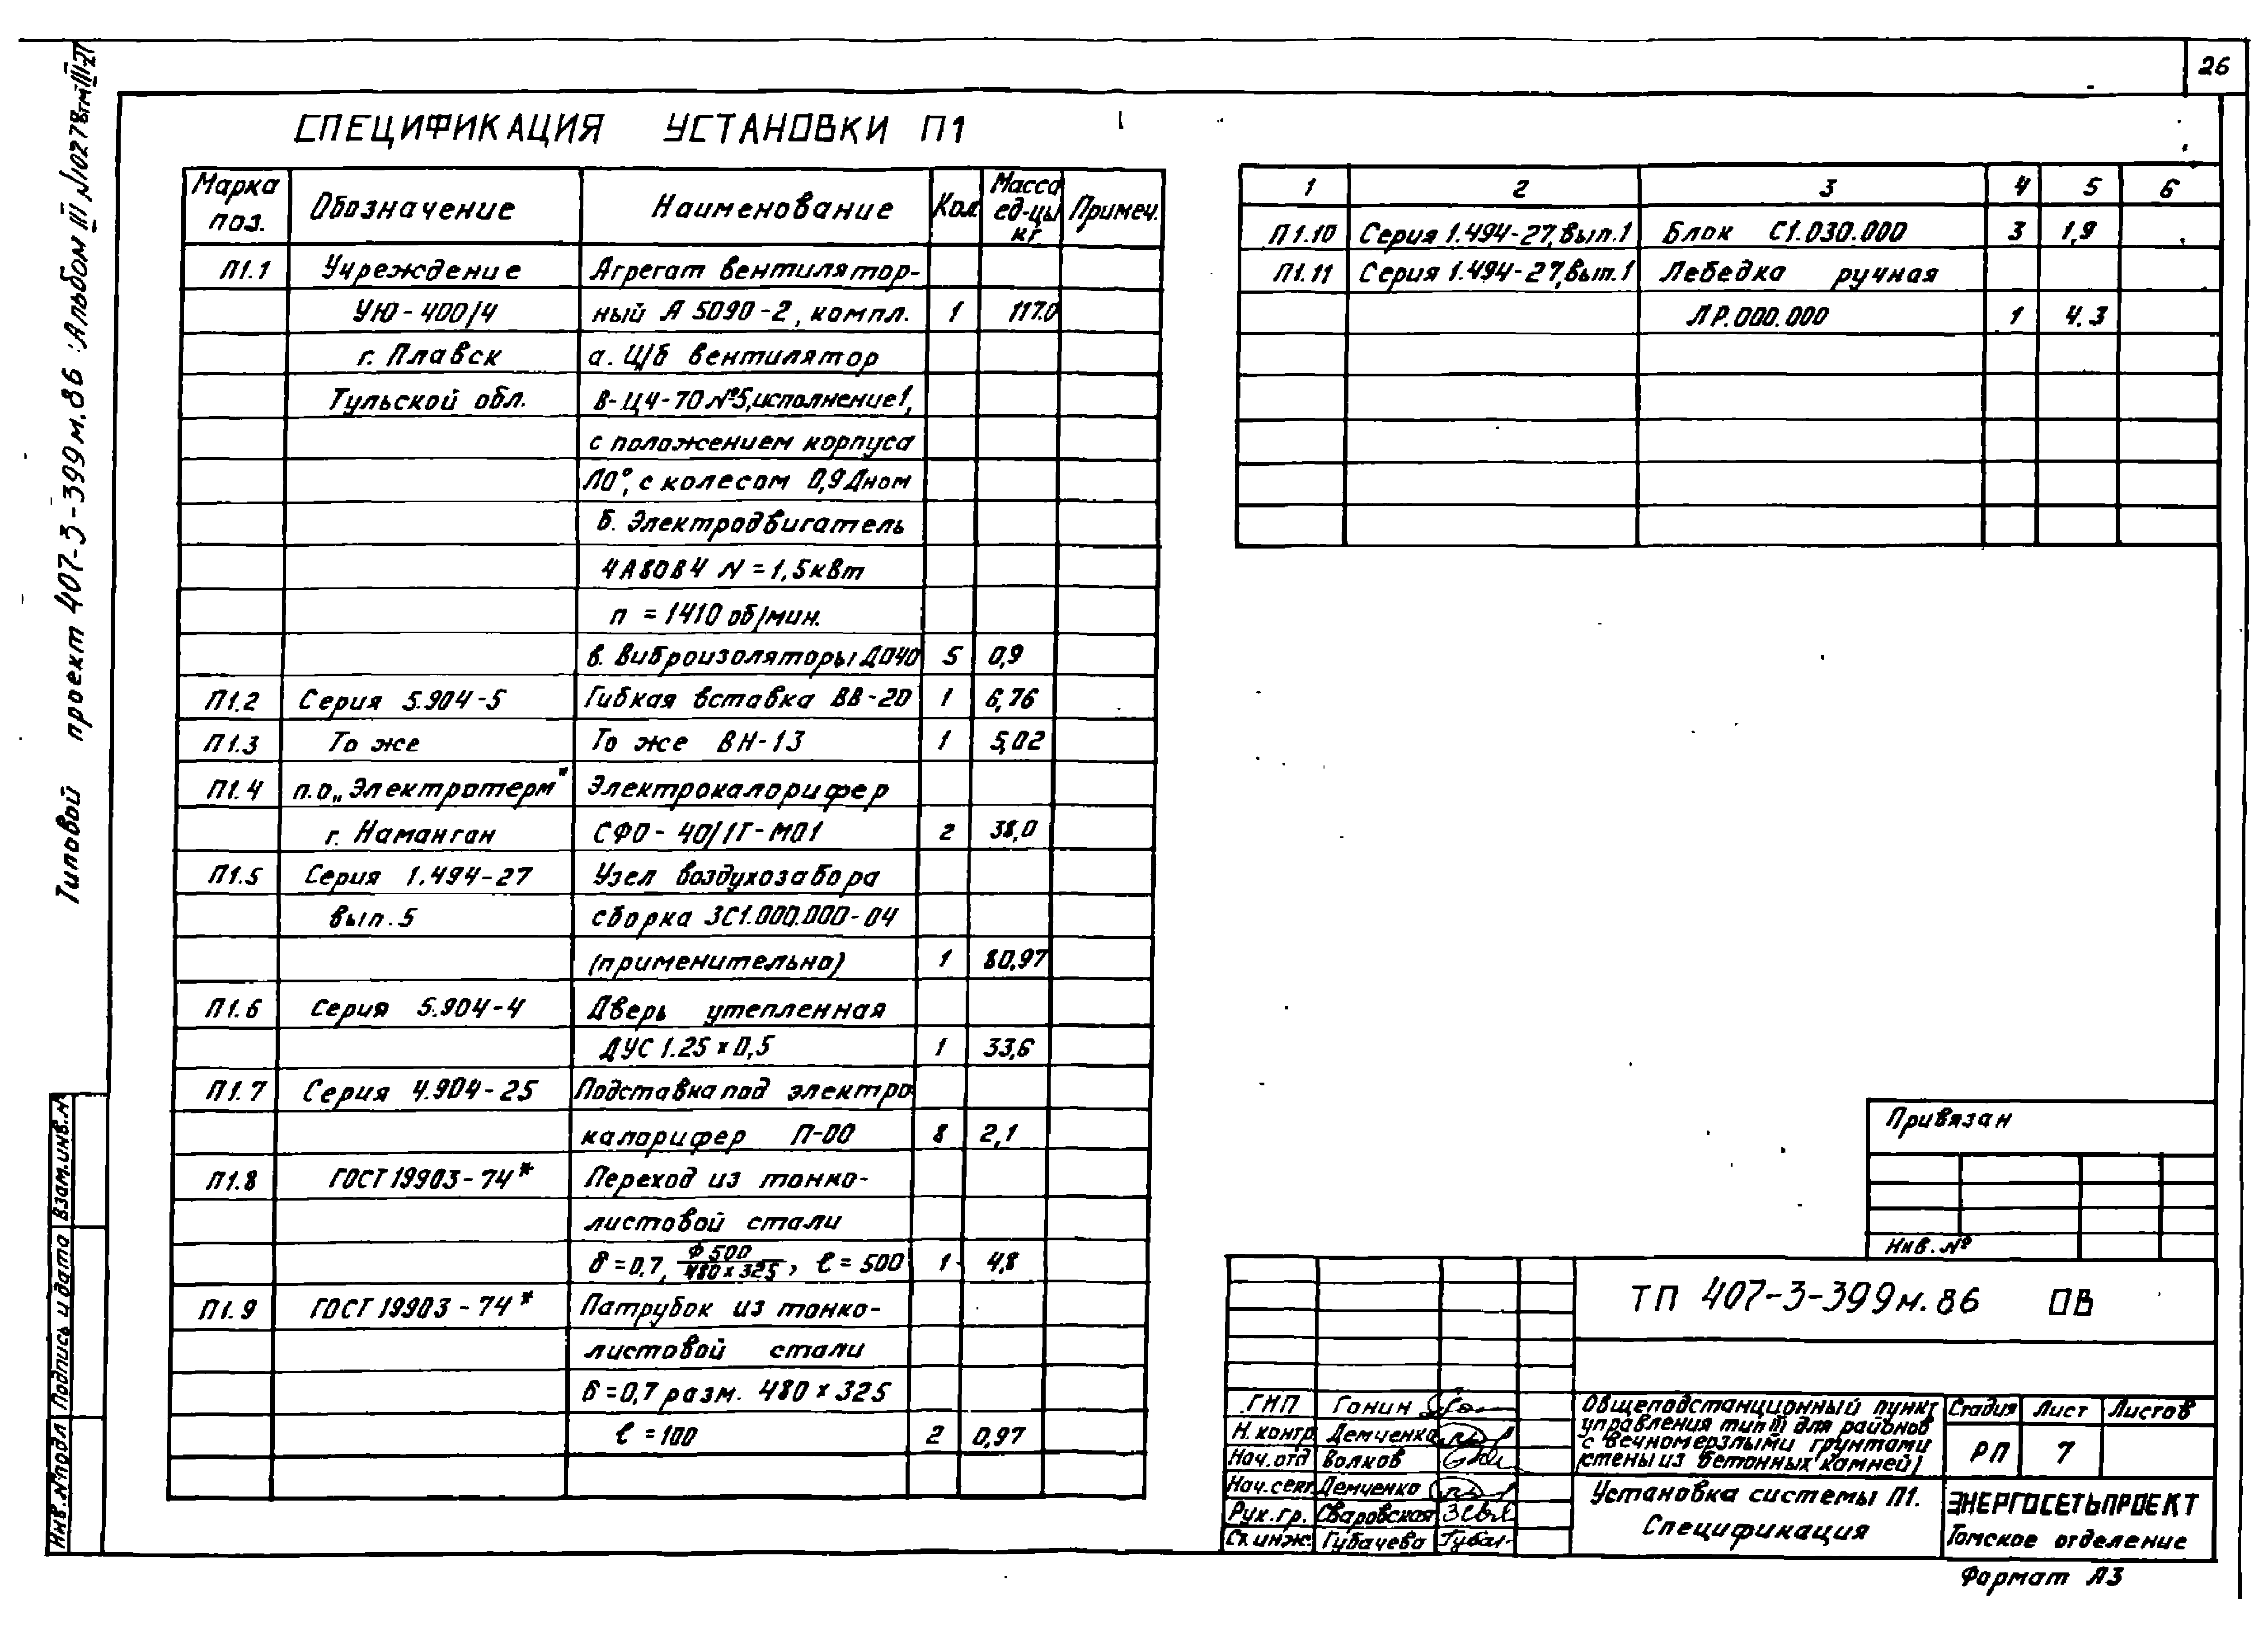 26
Типовой проект 407-3-399м.86 Альбом III №10278тм-III-27
СПЕЦИФИКАЦИЯ УСТАНОВКИ П1
Марка поз. Обозначение Наименование Кол Масса ед-цы кг Примеч.
П1.1 Учреждение Агрегат вентилятор-
УЮ-400/4 ный А 5090-2, компл. 1 117.0
г. Плавск а. Ц/б вентилятор
Тульской обл. В-Ц4-70 №5, исполнение 1,
с положением корпуса
Л0°, с колесом 0,9 Дном
б. Электродвигатель
4А80В4 N=1,5квт
n = 1410 об/мин.
в. Виброизоляторы ДО40 5 0,9
П1.2 Серия 5.904-5 Гибкая вставка ВВ-20 1 6,76
П1.3 То же То же ВН-13 1 5,02
П1.4 п.о „Электротерм" Электрокалорифер
г. Наманган СФО-40/1Т-М01 2 38,0
П1.5 Серия 1.494-27 Узел воздухозабора
вып.5 сборка ЗС1.000.000-04
(применительно) 1 80,97
П1.6 Серия 5.904-4 Дверь утепленная
ДУС 1.25×0,5 1 33,6
П1.7 Серия 4.904-25 Подставка под электро
калорифер П-00 8 2,1
П1.8 ГОСТ 19903-74* Переход из тонко-
листовой стали
δ=0.7, Ф500/480×325, ℓ=500 1 4,8
П1.9 ГОСТ 19903-74* Патрубок из тонко-
листовой стали
δ=0,7 разм. 480×325
ℓ=100 2 0,97
1 2 3 4 5 6
П1.10 Серия 1.494-27, вып.1 Блок С1.030.000 3 1,9
П1.11 Серия 1.494-27, вып.1 Лебедка ручная
ЛР.000.000 1 4.3
Привязан
Инв.№
ТП 407-3-399м.86 ОВ
ГИП Гонин
Н.контр Демченко
Нач.отд Волков
Нач.сект. Демченко
Рук.гр. Сваровская
Ст.инж. Губачева
Общеподстанционный пункт
управления тип III для районов
с вечномерзлыми грунтами
(стены из бетонных камней)
Стадия Лист Листов
РП 7
Установка системы П1.
Спецификация
ЭНЕРГОСЕТЬПРОЕКТ
Томское отделение
Формат А3
Взам.инв.№
Подпись и дата
Инв.№подл